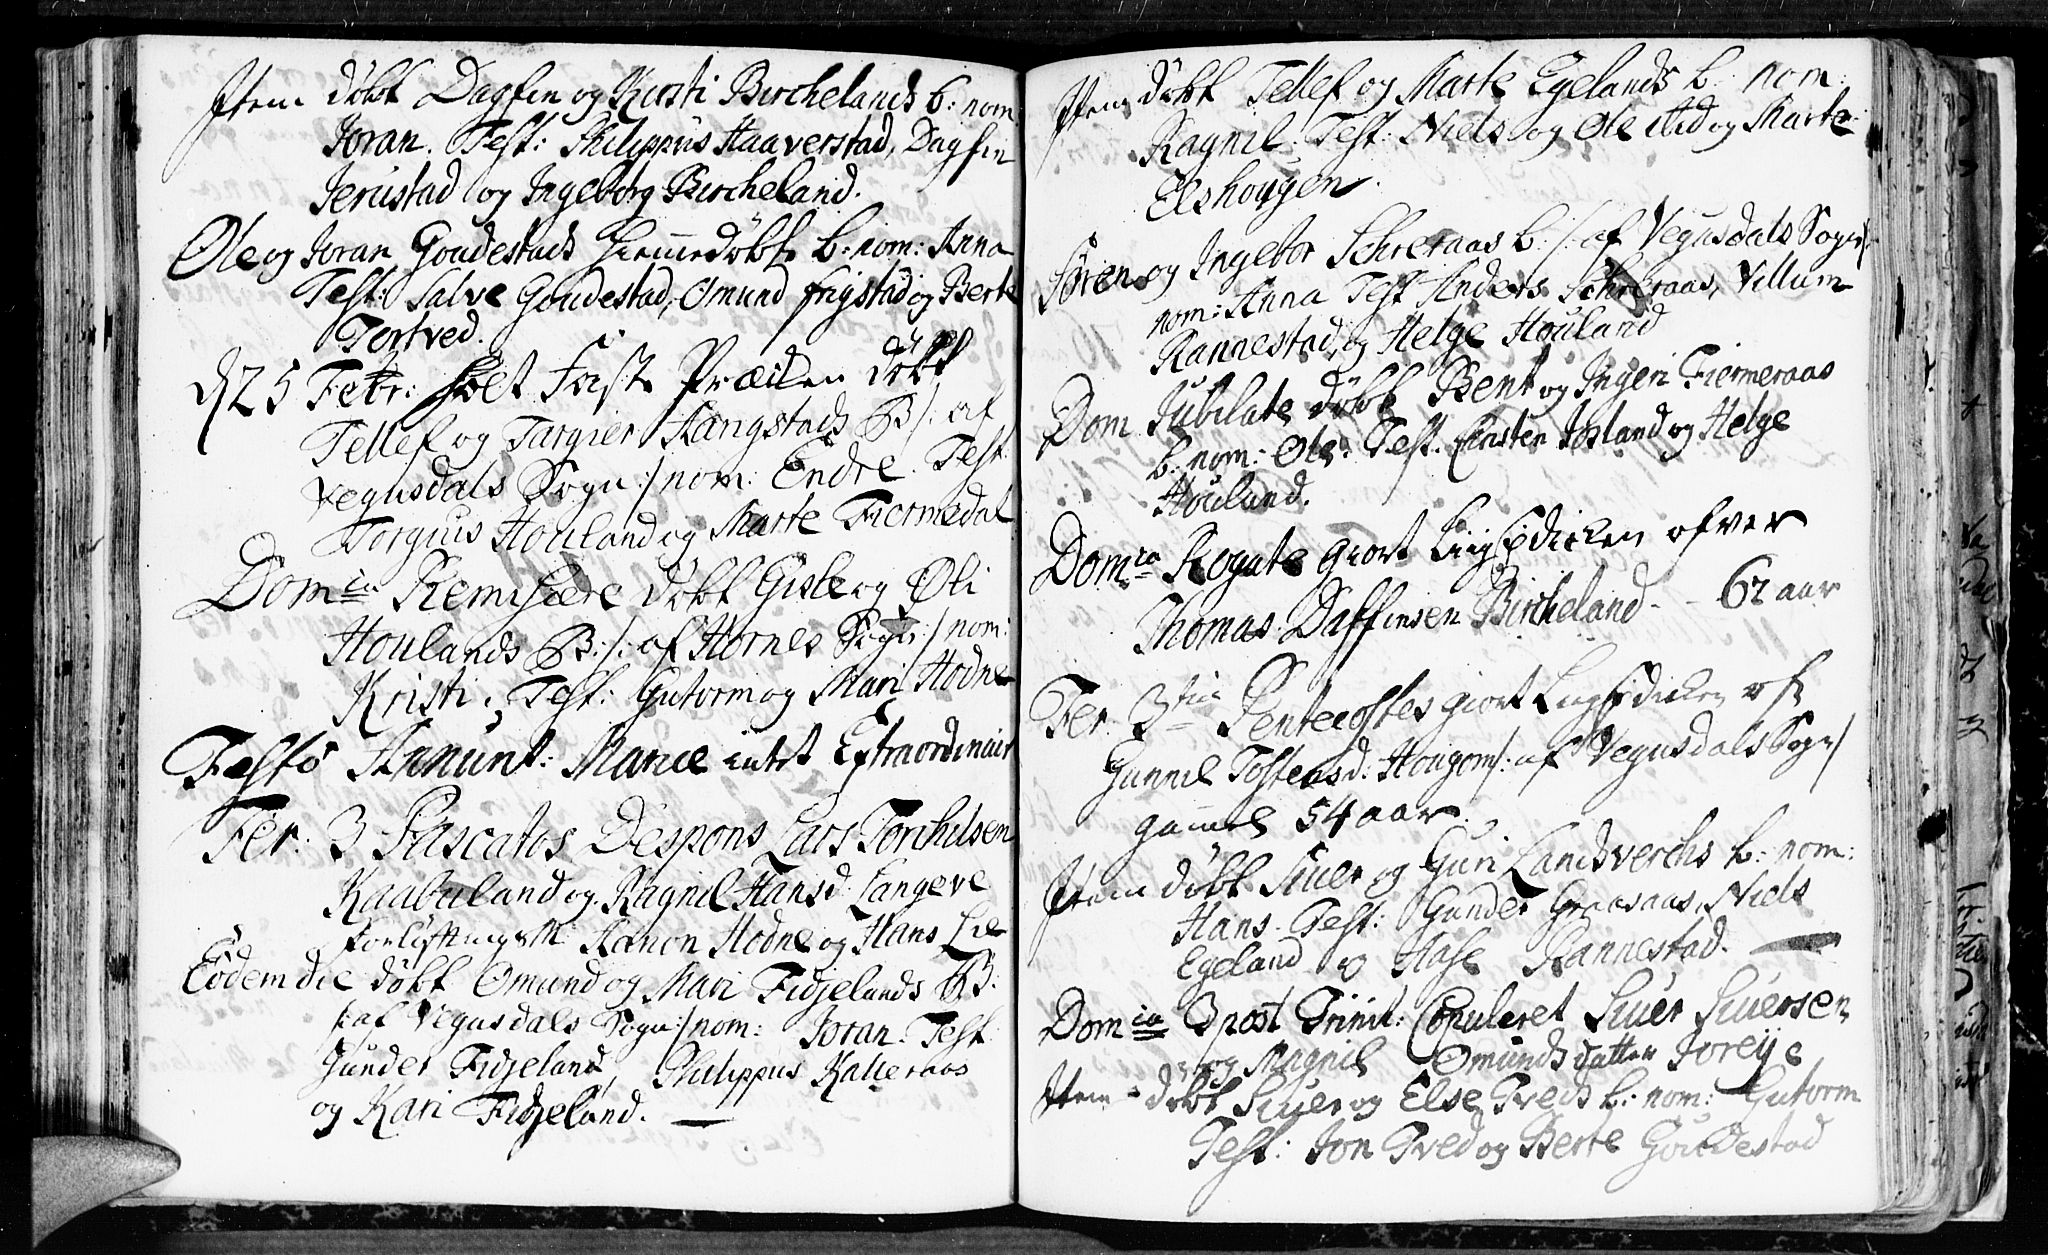 Item døbt Dagfin og Kirsti Birchelands b: nom:
Joran. Test: Philippus Haaverstad, Dagfin
Jerustad og Ingeborg Bircheland.
Ole og Joran Goudestads Hiemmedøbte b: nom: Anna
Test: Salve Goudestad, Omund frigstad og Berte
Tortved.
d 25 Febr: holt Faste Prædiken døbt
Tellef og Targier Hangstads B /: af
Vegusdals Sogn :/ nom: Endre. Test:
Torgius Houland og Marte Fiermedal
Dom:ca Reminiscere døbt Gisle og Oli
Houlands B: /: af Hornes Sogn :/ nom:
Kristi, Test: Gutorm og Mari Hodne
Festo Annunt: Mariæ intet Extraordinair
Fer: 3 Pascatos Despons Lars Torchilsen
Kaabuland og Ragnil Hansd: Langeve
Forløftningsm: Aanon Hodne og Hans Lie
Eodem die døbt Omund og Mari Fidjelands B:
/: af Vegusdals Sogn :/ nom: Joran. Test:
Gunder Fidjeland, Philippus Kalleraas
og Kari Fidjeland.
Item døbt Tellef og Marte Egelands b: nom:
Ragnil. Test: Niels og Ole og Marte
Elshougen.
Søren og Ingebor Schreraas b: /: af Vegusdals Sogn :/
nom: Anna Test Anders Schreraas, Villum
Rannestad og Helge Houland
Dom Jubilate døbt Bent og Ingeri Fiermeraas
b: nom: Ole. Test. Josland og Helge
Houland.
Dom:ca Rogate giort Liigprædicken ofver
Thomas Daffinsen Bircheland - - 62 aar
Fer. 3tia Pentecostes giort Liigprædicken of:
Gunnil Tostensd: Hougom /: af Vegusdals Sogn :/
gammel 54 aar.
Item døbt Siuer og Guri Landsverchs b: nom:
Hans. Test: Gunder Graasaas, Niels
Egeland o Rannestad.
Dom:ca 3 post Trinit: Copuleret Siuer Siuersen
og Magnil Omunds datter Joreije
Item døbt Siuer og Else Tveds b: nom: Gutorm
Test: Jon Tved og Berte Goudestad